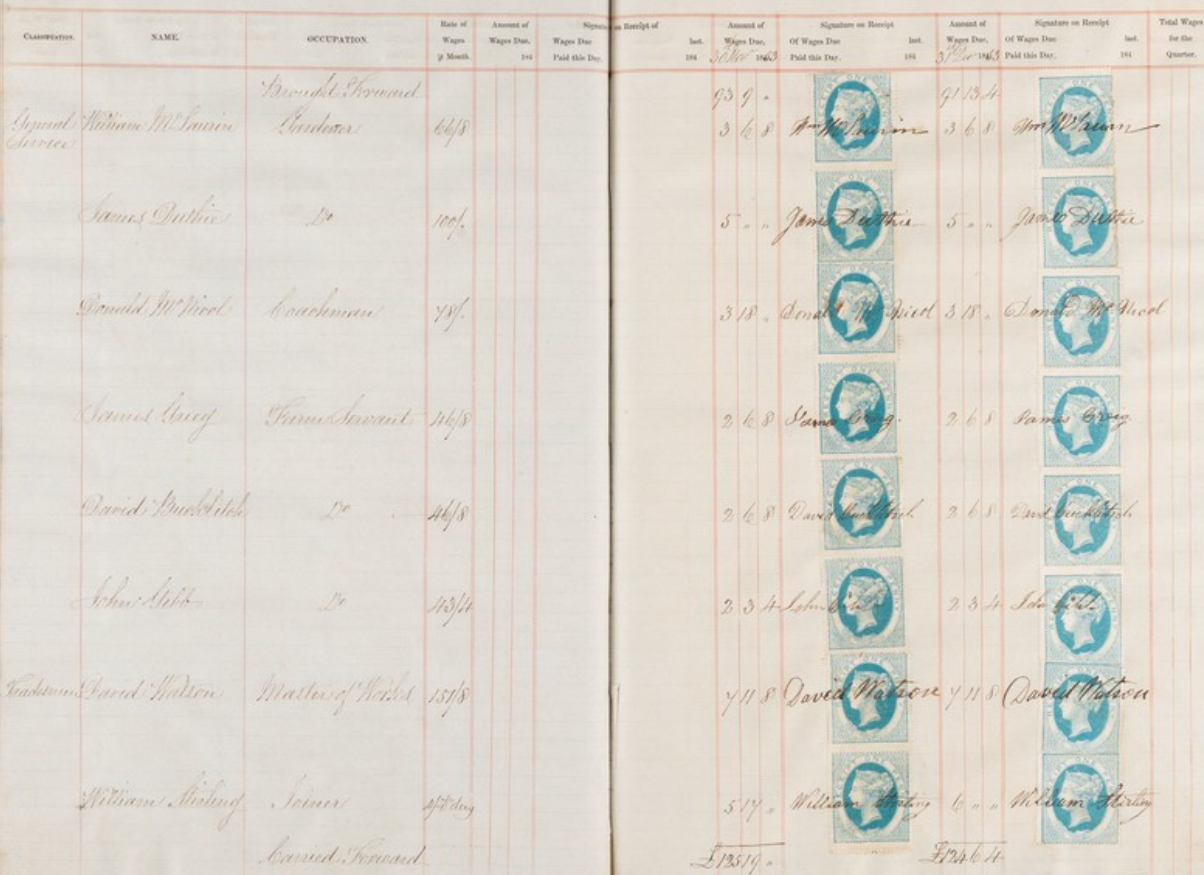 CLASSIFICATION. NAME. OCCUPATION. Rate of Wages ℔ Month. Amount of Wages Due, 184 Signature on Receipt of Wages Due last. Paid this Day. 184 Amount of Wages Due, 30 Nov 1863 Signature on Receipt Of Wages Due last. Paid this Day. 184 Amount of Wages Due, 31 Dec 1863 Signature on Receipt Of Wages Due last. Paid this Day. 184 Total Wages for the Quarter.
Brought Forward 93 9 " 91 13 4
General Service William McLaurin Gardener 66/8 3 6 8 Wm McLaurin 3 6 8 Wm McLaurin
James Duthie Do 100/. 5 " " James Duthie 5 " " James Duthie
Donald McNicol Coachman 78/. 3 18 " Donald McNicol 3 18 " Donald McNicol
James Greig Farm Servant 46/8 2 6 8 James Greig. 2 6 8 James Greig
David Do 46/8 2 6 8 David 2 6 8 David
John Gibb Do 43/4 2 3 4 John Gibb 2 3 4 John Gibb
Tradesmen David Watson Master of Works 151/8 7 11 8 David Watson 7 11 8 David Watson
William Stirling Joiner day 5 17 " William Stirling 6 " " William Stirling
Carried Forward £125 19 " £124 6 4